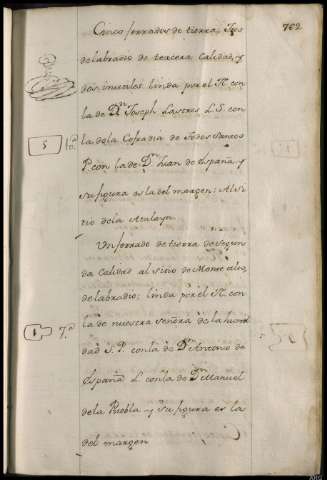 702
Cinco ferrados de tierra, tres
de labradio de tercera calidad, y
dos inutiles linda por el N. con
la de Dn Joseph Lastres L. S. con
5
la dela Cofradia de Todos Santos
P. con la de Dn Juan de España, y
su figura es la del margen: Al si
tio dela Atalaya
Un ferrado de tierra de segun
da calidad al sitio de Monte
de labradio; linda por el N. con
1
7.a
la de nuestra señora de la
dad S. P. con la de Dn Antonio de
España L. con la de Dn Manuel
dela Puebla y su figura es la
del margen